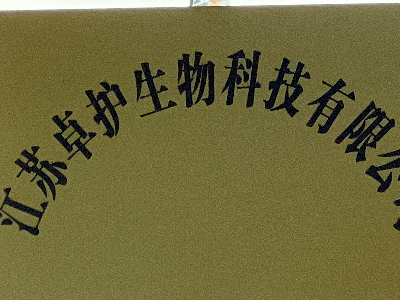 江苏卓护生物科技有限公